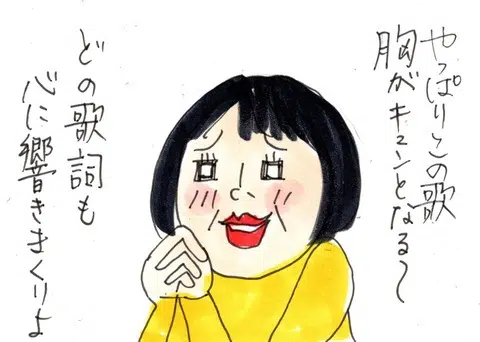 やっぱりこの歌
胸がキュンとなる〜
どの歌詞も
心に響きまくりよ